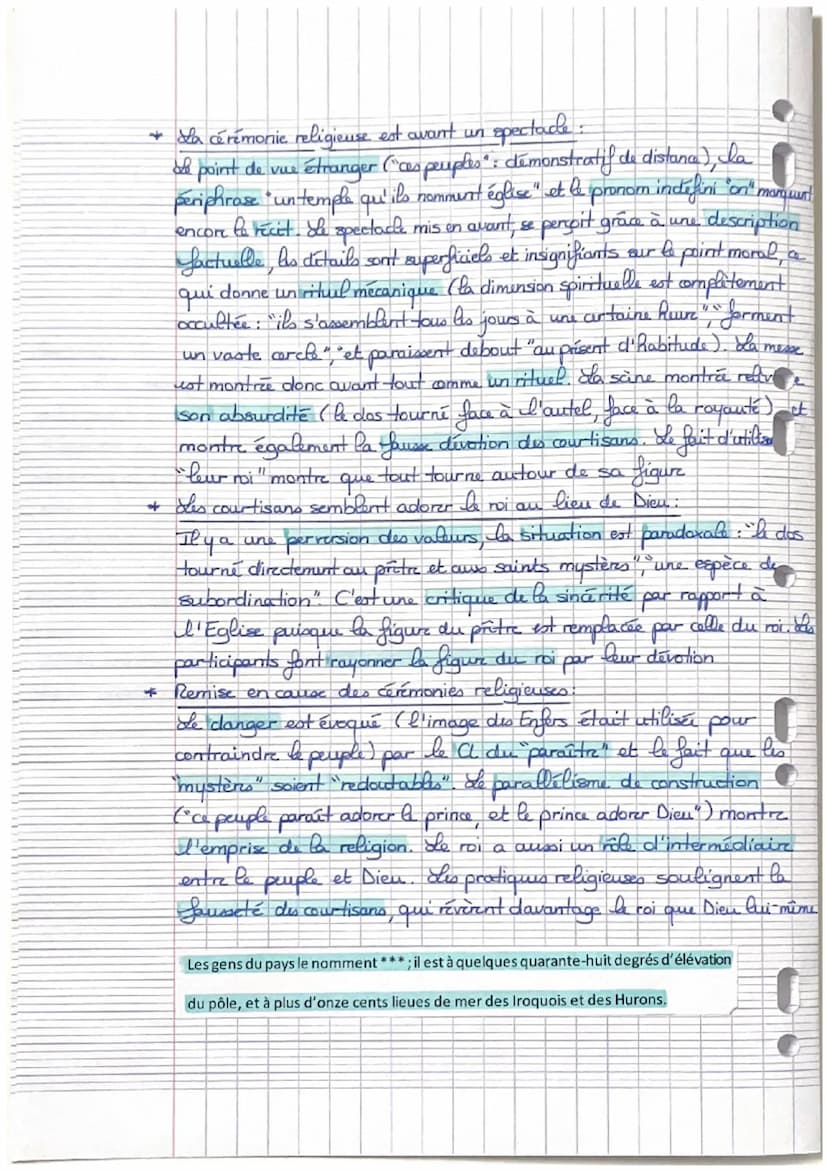 * La cérémonie religieuse est avant un spectacle :
Le point de vue étranger ("ces peuples" : démonstratif de distance), la
périphrase "un temple qu'ils nomment église" et le pronom indéfini "on" marquent
encore le récit. Le spectacle mis en avant, se perçoit grâce à une description
factuelle, les détails sont superficiels et insignifiants sur le point moral, ce
qui donne un rituel mécanique (la dimension spirituelle est complètement
occultée : "ils s'assemblent tous les jours à une certaine heure", "forment
un vaste cercle", "et paraissent debout" au présent d'habitude). La messe
est montrée donc avant tout comme un rituel. La scène montrée
son absurdité (le dos tourné face à l'autel, face à la royauté) et
montre également la fausse dévotion des courtisans. Le fait d'utiliser
"leur roi" montre que tout tourne autour de sa figure
* Les courtisans semblent adorer le roi au lieu de Dieu :
Il y a une perversion des valeurs, la situation est paradoxale : "le dos
tourné directement au prêtre et aux saints mystères", "une espèce de
subordination". C'est une critique de la sincérité par rapport à
l'Eglise puisque la figure du prêtre est remplacée par celle du roi. Les
participants font rayonner la figure du roi par leur dévotion
* Remise en cause des cérémonies religieuses :
Le danger est évoqué (l'image des Enfers était utilisée pour
contraindre le peuple) par le CL du "paraître" et le fait que les
"mystères" soient "redoutables". Le parallélisme de construction
("ce peuple paraît adorer le prince, et le prince adorer Dieu") montre
l'emprise de la religion. Le roi a aussi un rôle d'intermédiaire
entre le peuple et Dieu. Les pratiques religieuses soulignent la
fausseté des courtisans, qui révèrent davantage le roi que Dieu lui-même
Les gens du pays le nomment *** ; il est à quelques quarante-huit degrés d'élévation
du pôle, et à plus d'onze cents lieues de mer des Iroquois et des Hurons.